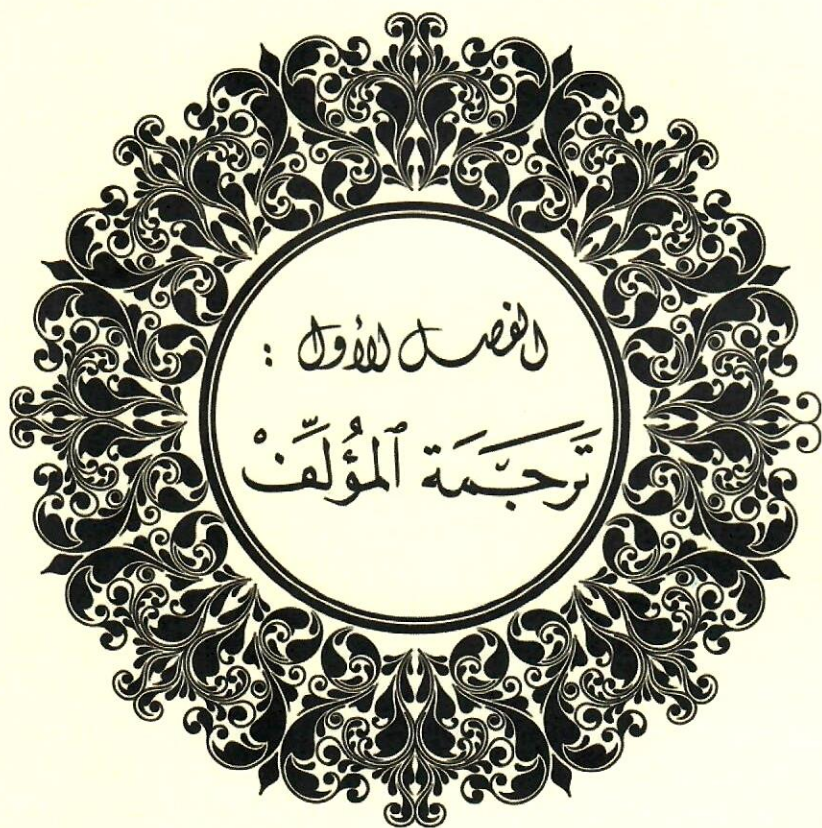 الفصل الأول :
تَرجَّمَة ٱلمؤُلِّفْ